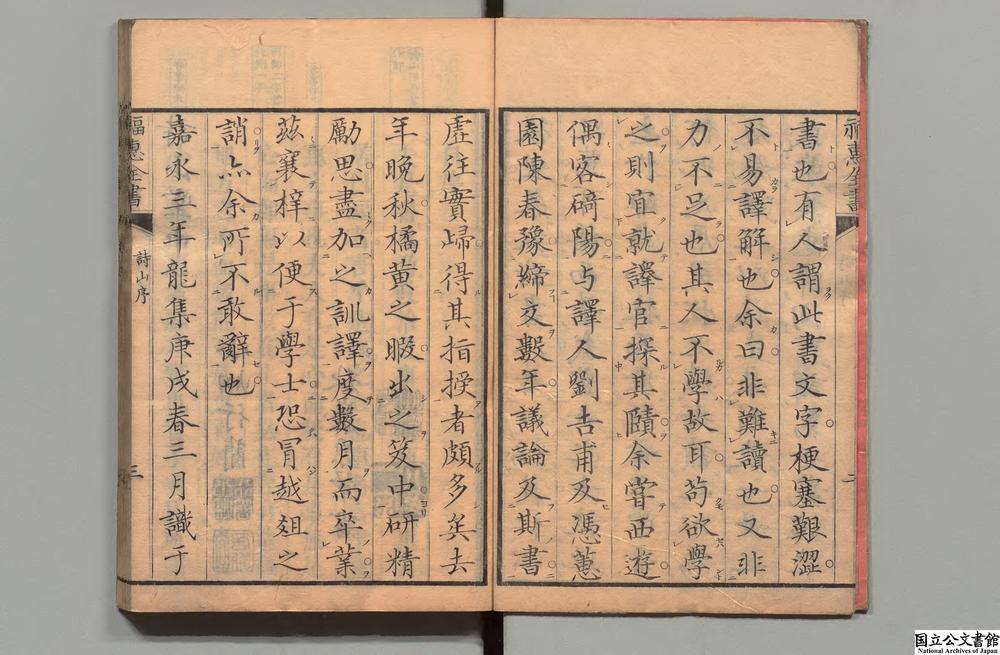 書也有人謂此書文字梗塞艱澀
不易譯解也余曰非難讀也又非
力不足也其人不學故耳苟欲學
之則宜就譯官探其賾余嘗西遊
偶客碕陽与譯人劉吉甫及馮蕙
園陳春豫締文數年議論及斯書
虛往實歸得其指授者頗多矣去
年晚秋橘黃之暇出之笈中研精
勵思盡加之訓譯度數月而卒業
茲襄梓以便于學士恐冒越俎之
誚点余所不敢辭也
嘉永三年龍集庚戌春三月識于
福惠全書
詩山序
三
国立公文書館
National Archives of Japan